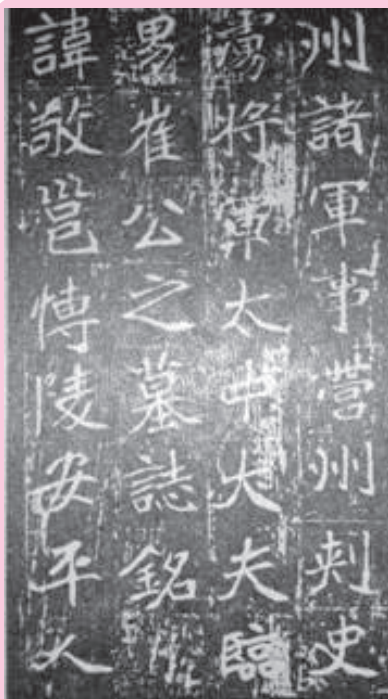 州諸軍事營州刺史
虜將軍太中大夫臨
男崔公之墓誌銘
諱敬邕博陵安平人